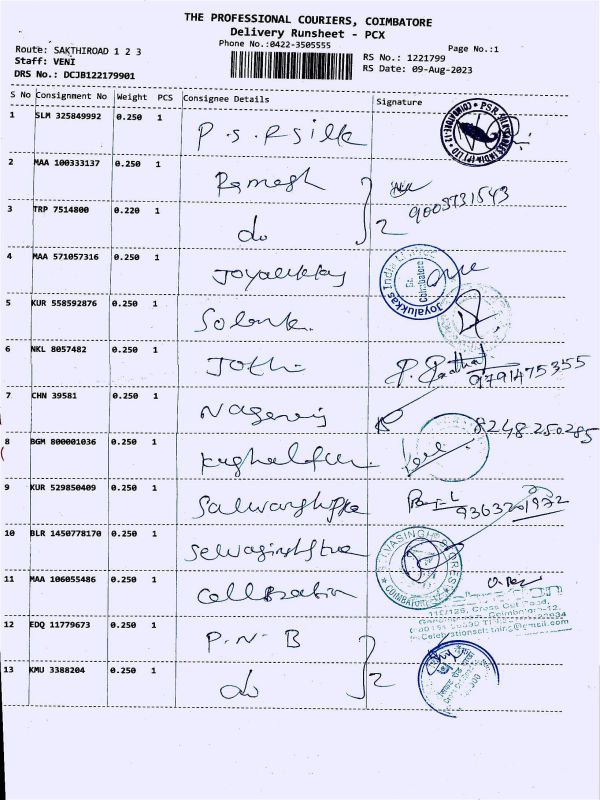 THE PROFESSIONAL COURIERS, COIMBATORE
Delivery Runsheet - PCX
Phone No.:0422-3505555
Page No.:1
Route: SAKTHIROAD 1 2 3
Staff: VENI
DRS No.: DCJB122179901
RS No.: 1221799
RS Date: 09-Aug-2023
S No Consignment No Weight PCS Consignee Details Signature
1 SLM 325849992 0.250 1 P.S.R silk
2 MAA 100333137 0.250 1 Ramesh
9003731543
3 TRP 7514800 0.220 1 do 2
4 MAA 571057316 0.250 1 Joyalukkas
Joyalukkas India Limited
Coimbatore
5 KUR 558592876 0.250 1
6 NKL 8057482 0.250 1 Jothi
9791475355
7 CHN 39581 0.250 1
8 BGM 800001036 0.250 1
8248250285
9 KUR 529850409 0.250 1
9363201972
10 BLR 1450778170 0.250 1
COIMBATORE
11 MAA 106055486 0.250 1 Celebration
110/126, Cross Cut Road,
12 EDQ 11779673 0.250 1 P.N.B
13 KMU 3388204 0.250 1 do 2